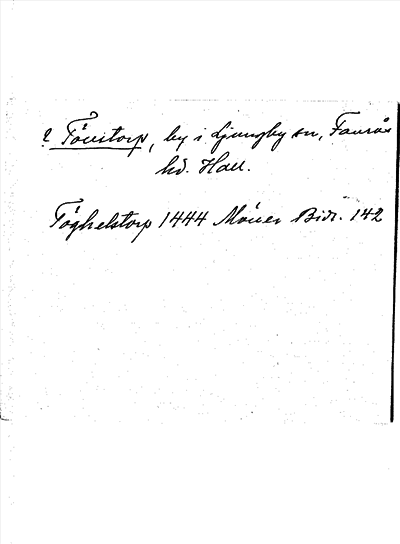 ? Tövistorp, by i Ljungby sn, Faurås
hd. Hall.
Töghelstorp 1444 Möller Bidr. 142